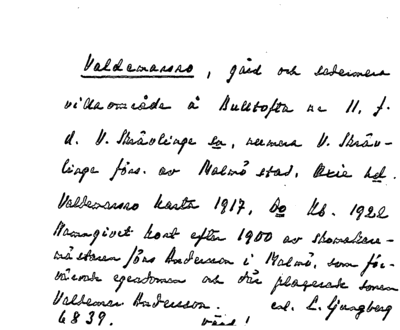 Valdemarsro, gård och sedermera
villaområde å Bulltofta nr 11, f.
d. V. Skrävlinge sn, numera V. Skräv-
linge förs. av Malmö stad, Oxie hd.
Valdemarsro karta 1917, Do Kb. 1922
Namngivet kort efter 1900 av skomakare-
mästaren Jöns Andersson i Malmö, som för-
värvade egendomen och där placerade sonen
Valdemar Andersson. enl. L. Ljungberg
6839.